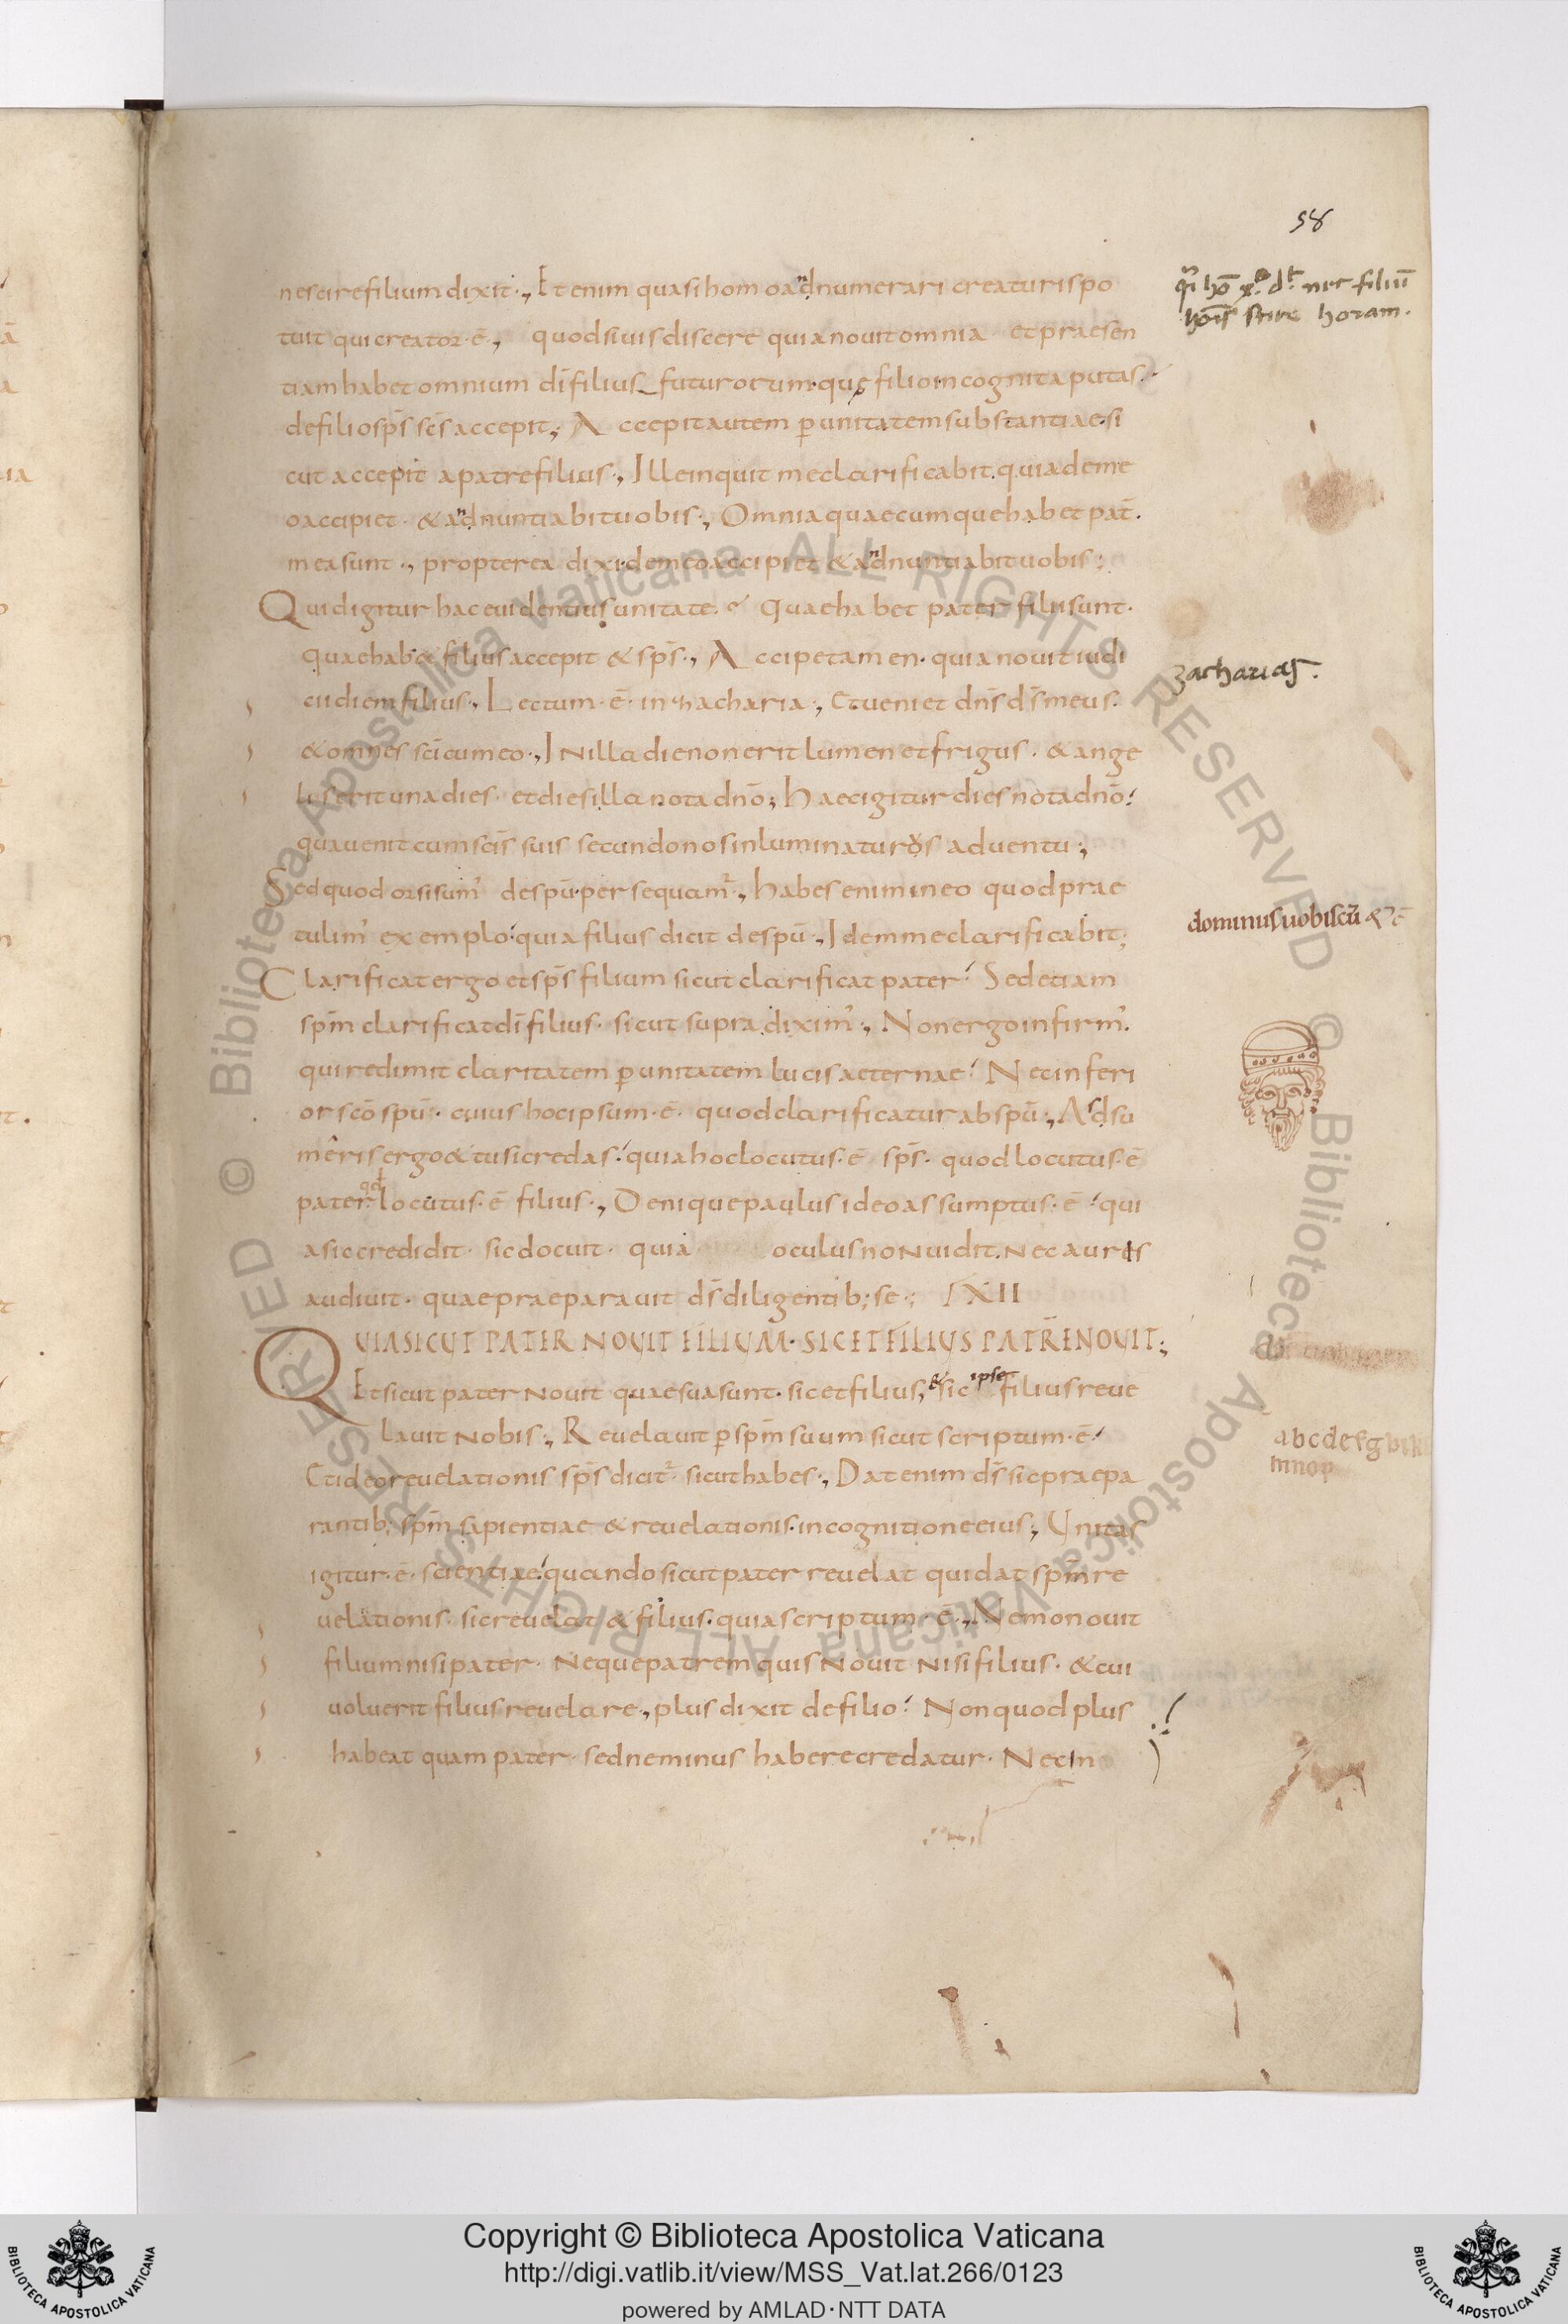 58
nescire filium dixit ., Et enim quasi homo adnumerari creaturis po
tuit qui creator · ē ., quod si uis discere quia nouit omnia et praesen
tiam habet omnium dī filius futurorum · quę filio incognita putas ·
de filio sp̄s sc̄s accepit ; Accepit autem p̱ unitatem substantiae · si
cut accepit a patre filius ., Ille inquit me clarificabit · quia de me
o accipiet · & adnuntiabit uobis ., Omnia quaecumque habet pat̄ ·
mea sunt ., propterea dixi · de meo accipiet & adnuntiabit uobis ;
Quid igitur hac euidentius unitate · Quae habet pater filii sunt ·
quae hab& filius accepit & sp̄s ., Accipe tamen · quia nouit iudi
cii diem filius ., Lectum · ē · in zacharia ., Et ueniet dn̄s d̄s meus ·
& omnes sc̄i cum eo ., In illa die non erit lumen et frigus · & ange
lus erit una dies · et dies illa nota dnō ; Haec igitur dies nota dnō ·
qua uenit cum sc̄is suis secundo nos inluminaturus aduentu ;
Sed quod orsi sum' de spū · persequam' ., habes enim in eo quod prae
tulim' exemplo · quia filius dicit de spū ., Idem me clarificabit ;
Clarificat ergo et sp̄s filium sicut clarificat pater · Sed etiam
sp̄m clarificat dī filius · sicut supra dixim' ., Non ergo infirm' ·
qui redimit claritatem p̱ unitatem lucis aeternae · Nec inferi
or scō spū · cuius hoc ipsum · ē · quod clarificatur ab spū ., Adsu
meris ergo & tu si credas · quia hoc locutus · ē sp̄s · quod locutus · ē
pater · qd locutus · ē filius ., Denique paulus ideo assumptus · ē · qui
a sic credidit · sic docuit · quia oculus non uidit · nec auris
audiuit · quae praeparauit d̄s diligentib; se ., LXII
QUIA SICUT PATER NOUIT FILIUM · SIC ET FILIUS PATRĒ NOUIT ;
Et sicut pater nouit quae sua sunt · sic et filius , & sic ipse filius reue
lauit nobis ., Reuelauit p̱ sp̄m suum sicut scriptum · ē ·
Et ideo reuelationis sp̄s dicit' · sicut habes ., Dat enim d̄s sic praepa
rantib; sp̄m sapientiae & reuelationis · in cognitione eius ; Unitas
igitur · ē · scientiae · quando sicut pater reuelat qui dat sp̄m re
uelationis · sic reuelat & filius · quia scriptum · ē ., Nemo nouit
filium nisi pater · neque patrem quis nouit nisi filius · & cui
uoluerit filius reuelare ., plus dixit de filio · Non quod plus
habeat quam pater · sed ne minus habere credatur · Nec in
nec filiū
scire horam ·
zacharias ·
dominus uobiscū
abcdefghik
mnop
Copyright © Biblioteca Apostolica Vaticana
http://digi.vatlib.it/view/MSS_Vat.lat.266/0123
powered by AMLAD·NTT DATA
BIBLIOTECA APOSTOLICA VATICANA
BIBLIOTECA APOSTOLICA VATICANA
© Biblioteca Apostolica Vaticana ALL RIGHTS RESERVED
© Biblioteca Apostolica Vaticana ALL RIGHTS RESERVED